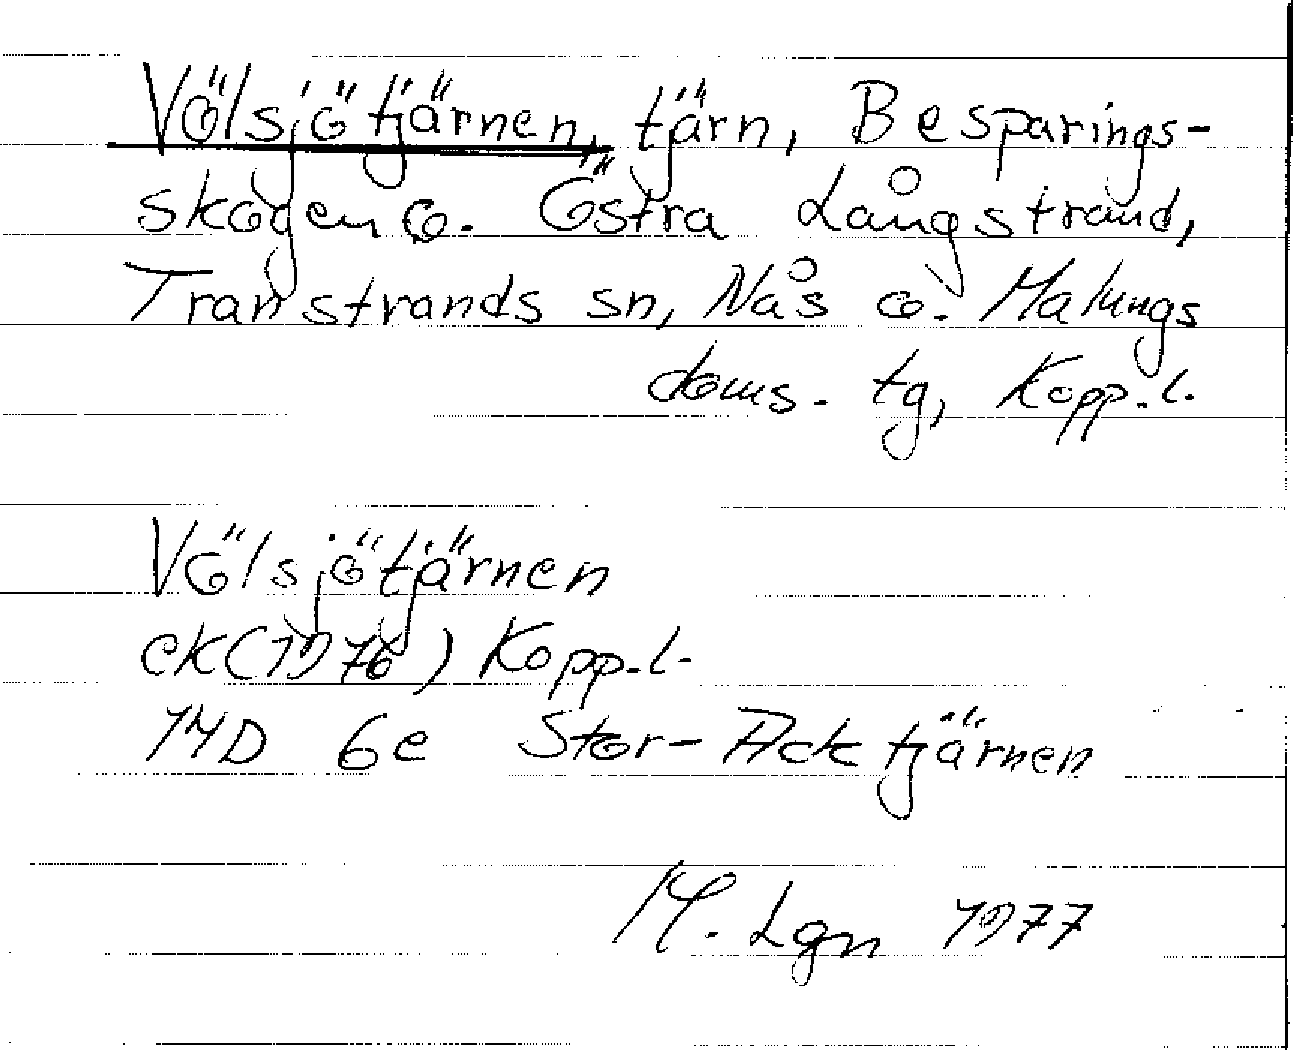 Völsjötjärnen, tjärn, Besparings-
skogen o. Östra Långstrand,
Transtrands sn, Nås o. Malungs
doms. tg, Kopp.l.
Völsjötjärnen
ek(1976) Kopp.l.
14D 6e Stor-Acktjärnen
M. Lgn 1977